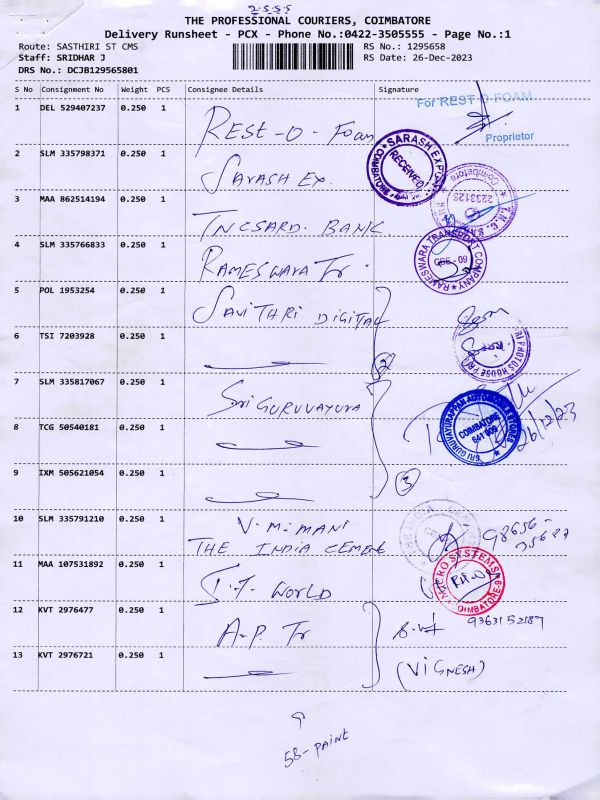 2-5-5-5
THE PROFESSIONAL COURIERS, COIMBATORE
Delivery Runsheet - PCX - Phone No.:0422-3505555 - Page No.:1
Route: SASTHIRI ST CMS
RS No.: 1295658
Staff: SRIDHAR J
RS Date: 26-Dec-2023
DRS No.: DCJB129565801
S No Consignment No Weight PCS Consignee Details Signature
1 DEL 529407237 0.250 1 REST-O-Foam For REST-O-FOAM
Proprietor
2 SLM 335798371 0.250 1 SARASH EX. SARASH EXPO COIMBATORE RECEIVED
3 MAA 862514194 0.250 1 TNCSARD. BANK Coimbatore 2233126
4 SLM 335766833 0.250 1 RAMESWARA Tr. RAMESWARA TRANSPORT COMPANY CBE-09
5 POL 1953254 0.250 1 SAVITHRI DIGITAL
6 TSI 7203928 0.250 1 PHOTO HOUSE
2
7 SLM 335817067 0.250 1 Sri GURUVAYURA
8 TCG 50540181 0.250 1 SRI GURUVAYURAPPAN AUTOMOBILE STORES COIMBATORE 641 009 26/12/23
9 IXM 505621054 0.250 1
3
10 SLM 335791210 0.250 1 V. M. MANI
THE INDIA CEMENT 98656-
75687
11 MAA 107531892 0.250 1 S.T. WORLD MICRO SYSTEMS COIMBATORE-9
12 KVT 2976477 0.250 1 A.P. Tr 9363152187
13 KVT 2976721 0.250 1 (VIGNESH)
58-PAINT